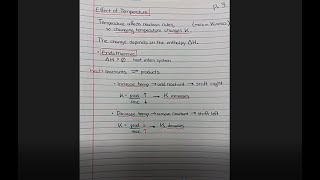 p. 9
Effect of Temperature
Temperature affects reaction rates,
so changing temperature changes K.
The change depends on the enthalpy ΔH.
• Endothermic
ΔH > 0 heat enters system
heat + reactants ⇌ products
• Increase temp → add reactant → shift right
K = prod ↑ → K increases
↓
• Decrease temp → remove reactant → shift left
K = prod ↓ → K decreases
↑